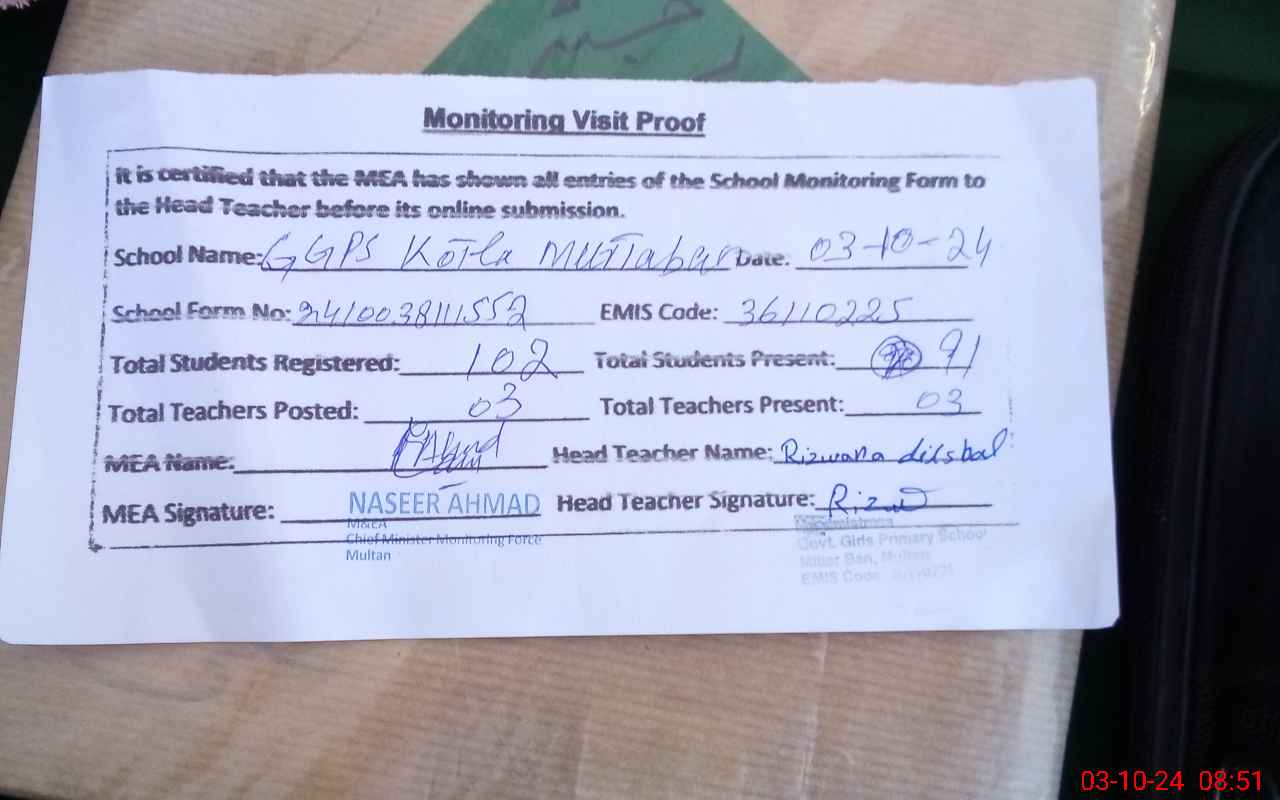 Monitoring Visit Proof
It is certified that the MEA has shown all entries of the School Monitoring Form to
the Head Teacher before its online submission.
School Name: GGPS Kotla Muttabar Date: 03-10-24
School Form No: 2410038111552 EMIS Code: 36110225
Total Students Registered: 102 Total Students Present: 91
Total Teachers Posted: 03 Total Teachers Present: 03
MEA Name: Head Teacher Name: Rizwana dilshad
MEA Signature: NASEER AHMAD Head Teacher Signature: Rizw
M&EA
Chief Minister Monitoring Force
Multan
Govt. Girls Primary School
Multan
EMIS Code
03-10-24 08:51